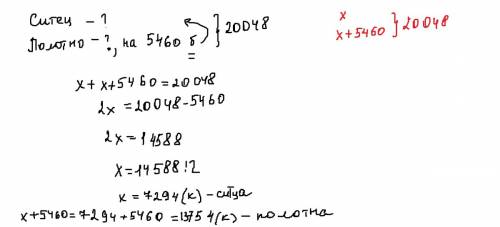 Ситец – ?
Полотно – ?, на 5460 б } 20048
x
x+5460 } 20048
x + x + 5460 = 20048
2x = 20048 - 5460
2x = 14588
x = 14588 : 2
x = 7294 (к) – ситца
x+5460 = 7294 + 5460 = 13754 (к) – полотна